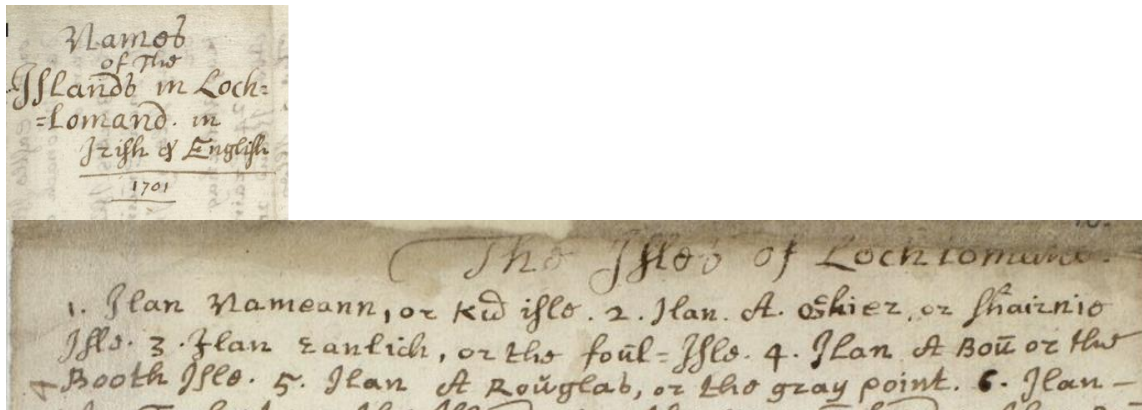 Names
of The
Islands in Loch=
=Lomand. in
Irish & English
1701
The Isles of Lochlomand.
1. Ilan Nameann, or Kid isle. 2. Ilan. A. oskier, or shairnie
Isle. 3. Ilan Eanlich, or the foul=Isle. 4. Ilan A Bou or the
Booth Isle. 5. Ilan A Rouglas, or the gray point. 6. Ilan —